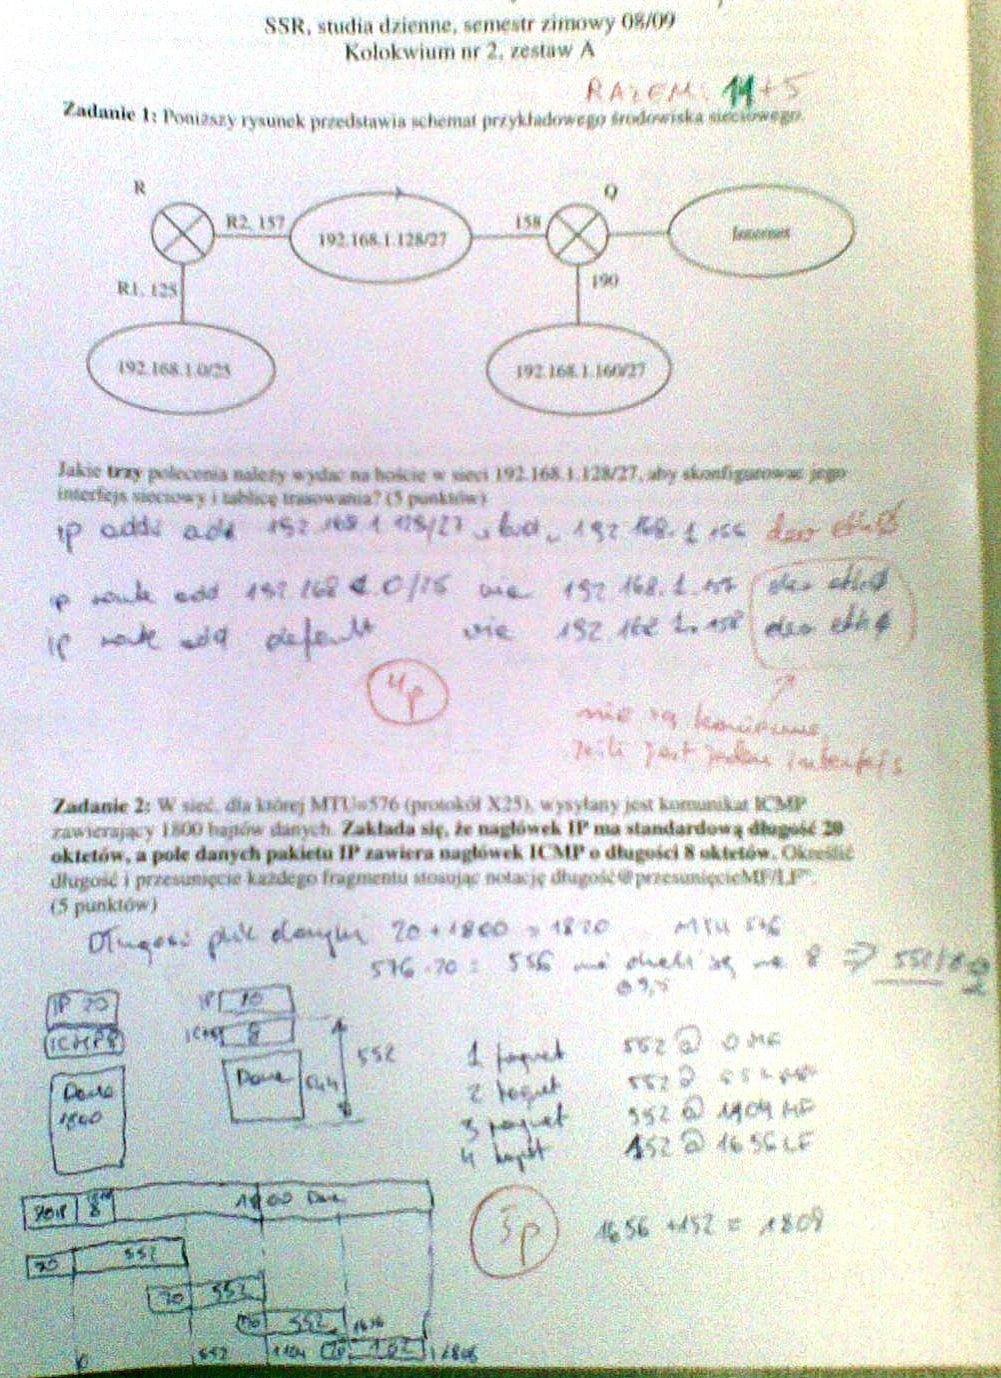 SSR, studia dzienne, semestr zimowy 08/09
Kolokwium nr 2, zestaw A
RAZEM: 11+5
Zadanie 1: Poniższy rysunek przedstawia schemat przykładowego środowiska sieciowego.
R
Q
R2, 157
192.168.1.128/27
158
Internet
R1, 125
190
192.168.1.0/25
192.168.1.160/27
Jakie trzy polecenia należy wydać na hoście w sieci 192.168.1.128/27, aby skonfigurować jego
interfejs sieciowy i tablicę trasowania? (5 punktów)
ip addr add 192.168.1.128/27 192.168.1.155 dev eth0
ip route add 192.168.1.0/25 via 192.168.1.157 dev eth0
ip route add default via 192.168.1.158 dev eth0
4p
nie są konieczne,
jeśli jest jeden interfejs
Zadanie 2: W sieć, dla której MTU=576 (protokół X25), wysyłany jest komunikat ICMP
zawierający 1800 bajtów danych. Zakłada się, że nagłówek IP ma standardową długość 20
oktetów, a pole danych pakietu IP zawiera nagłówek ICMP o długości 8 oktetów. Określić
długość i przesunięcie każdego fragmentu stosując notację długość@przesunięcieMF/LF".
(5 punktów)
Długość 20+1800 = 1820 MTU 576
576-20 = 556 się na 8 => 552/8
IP 20
IP 20
ICMP 8
ICMP 8
552
Dane
1800
Dane
544
1 pakiet 552 @ 0 MF
2 pakiet 552 @ 552 MF
3 pakiet 552 @ 1104 MF
4 pakiet 152 @ 1656 LF
20IP 8 1800 Dane
5p
1656 + 152 = 1808
20 552
20 552
20 552 1656
0 552 1104 20 152 1808